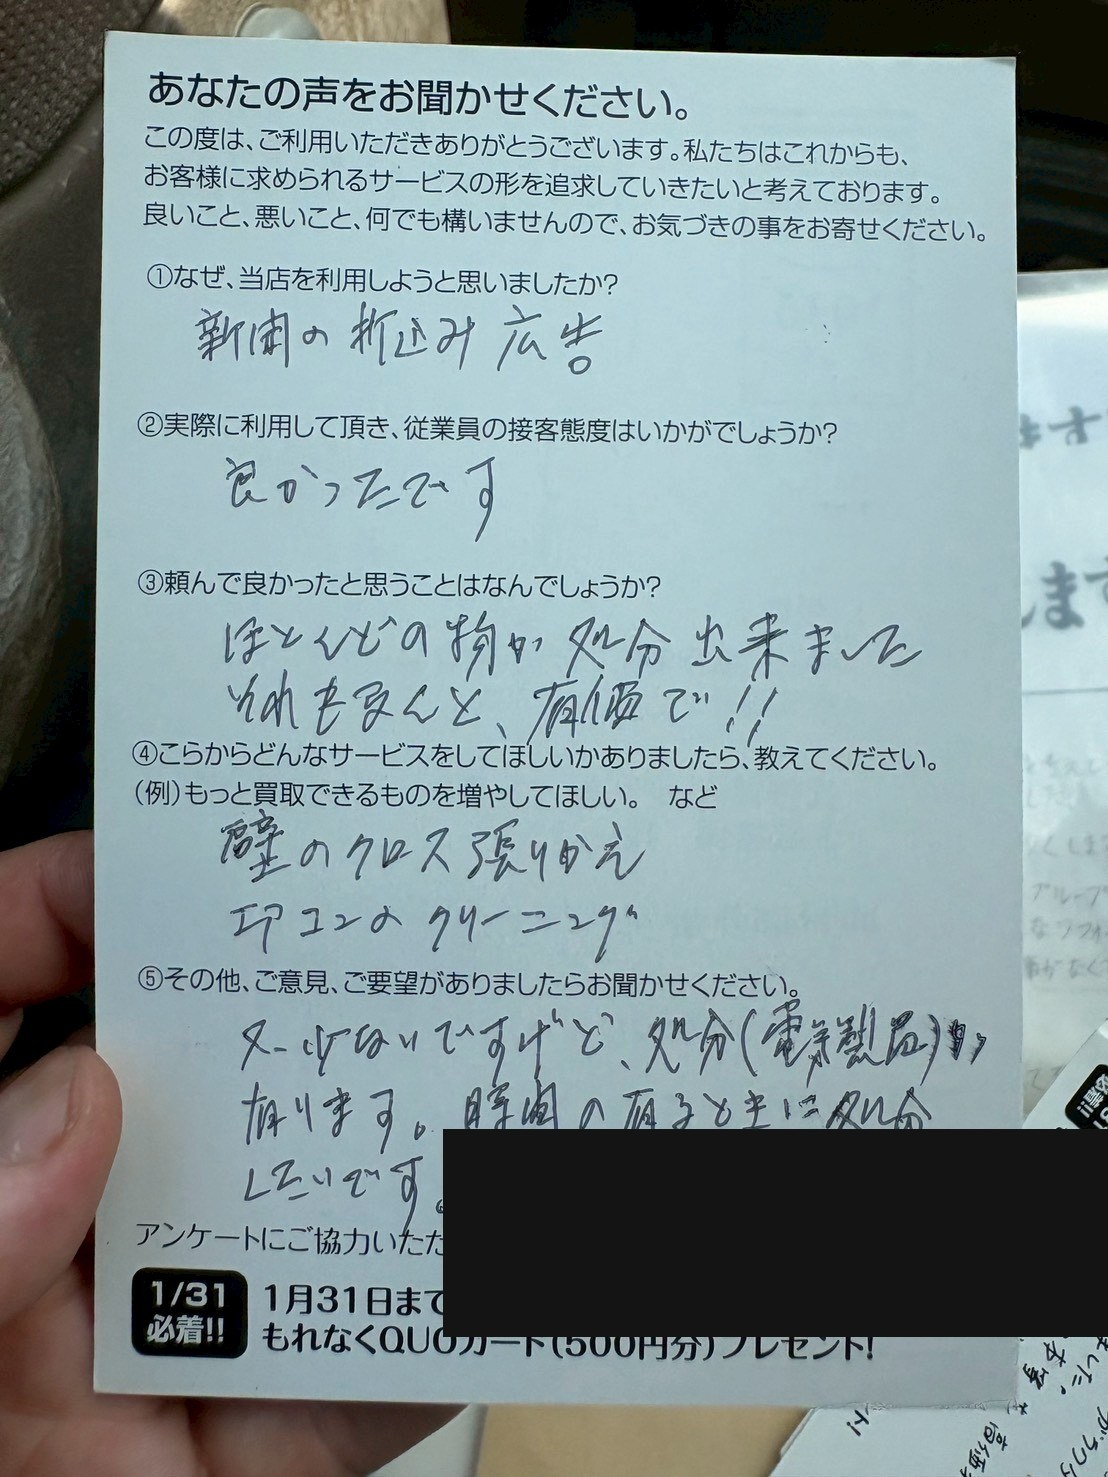 あなたの声をお聞かせください。
この度は、ご利用いただきありがとうございます。私たちはこれからも、
お客様に求められるサービスの形を追求していきたいと考えております。
良いこと、悪いこと、何でも構いませんので、お気づきの事をお寄せください。
①なぜ、当店を利用しようと思いましたか?
新聞の折込み広告
②実際に利用して頂き、従業員の接客態度はいかがでしょうか?
良かったです
③頼んで良かったと思うことはなんでしょうか?
ほとんどの物が処分出来ました
それもなんと、有価で!!
④こらからどんなサービスをしてほしいかありましたら、教えてください。
(例)もっと買取できるものを増やしてほしい。 など
壁のクロス張りかえ
エアコンの クリーニング
⑤その他、ご意見、ご要望がありましたらお聞かせください。
少ないですけど、処分(電気製品)
有ります。時間の有るときに処分
したいです。
アンケートにご協力いただ
1/31
必着!!
1月31日まで
もれなくQUOカード(500円分)プレゼント!
ます
します